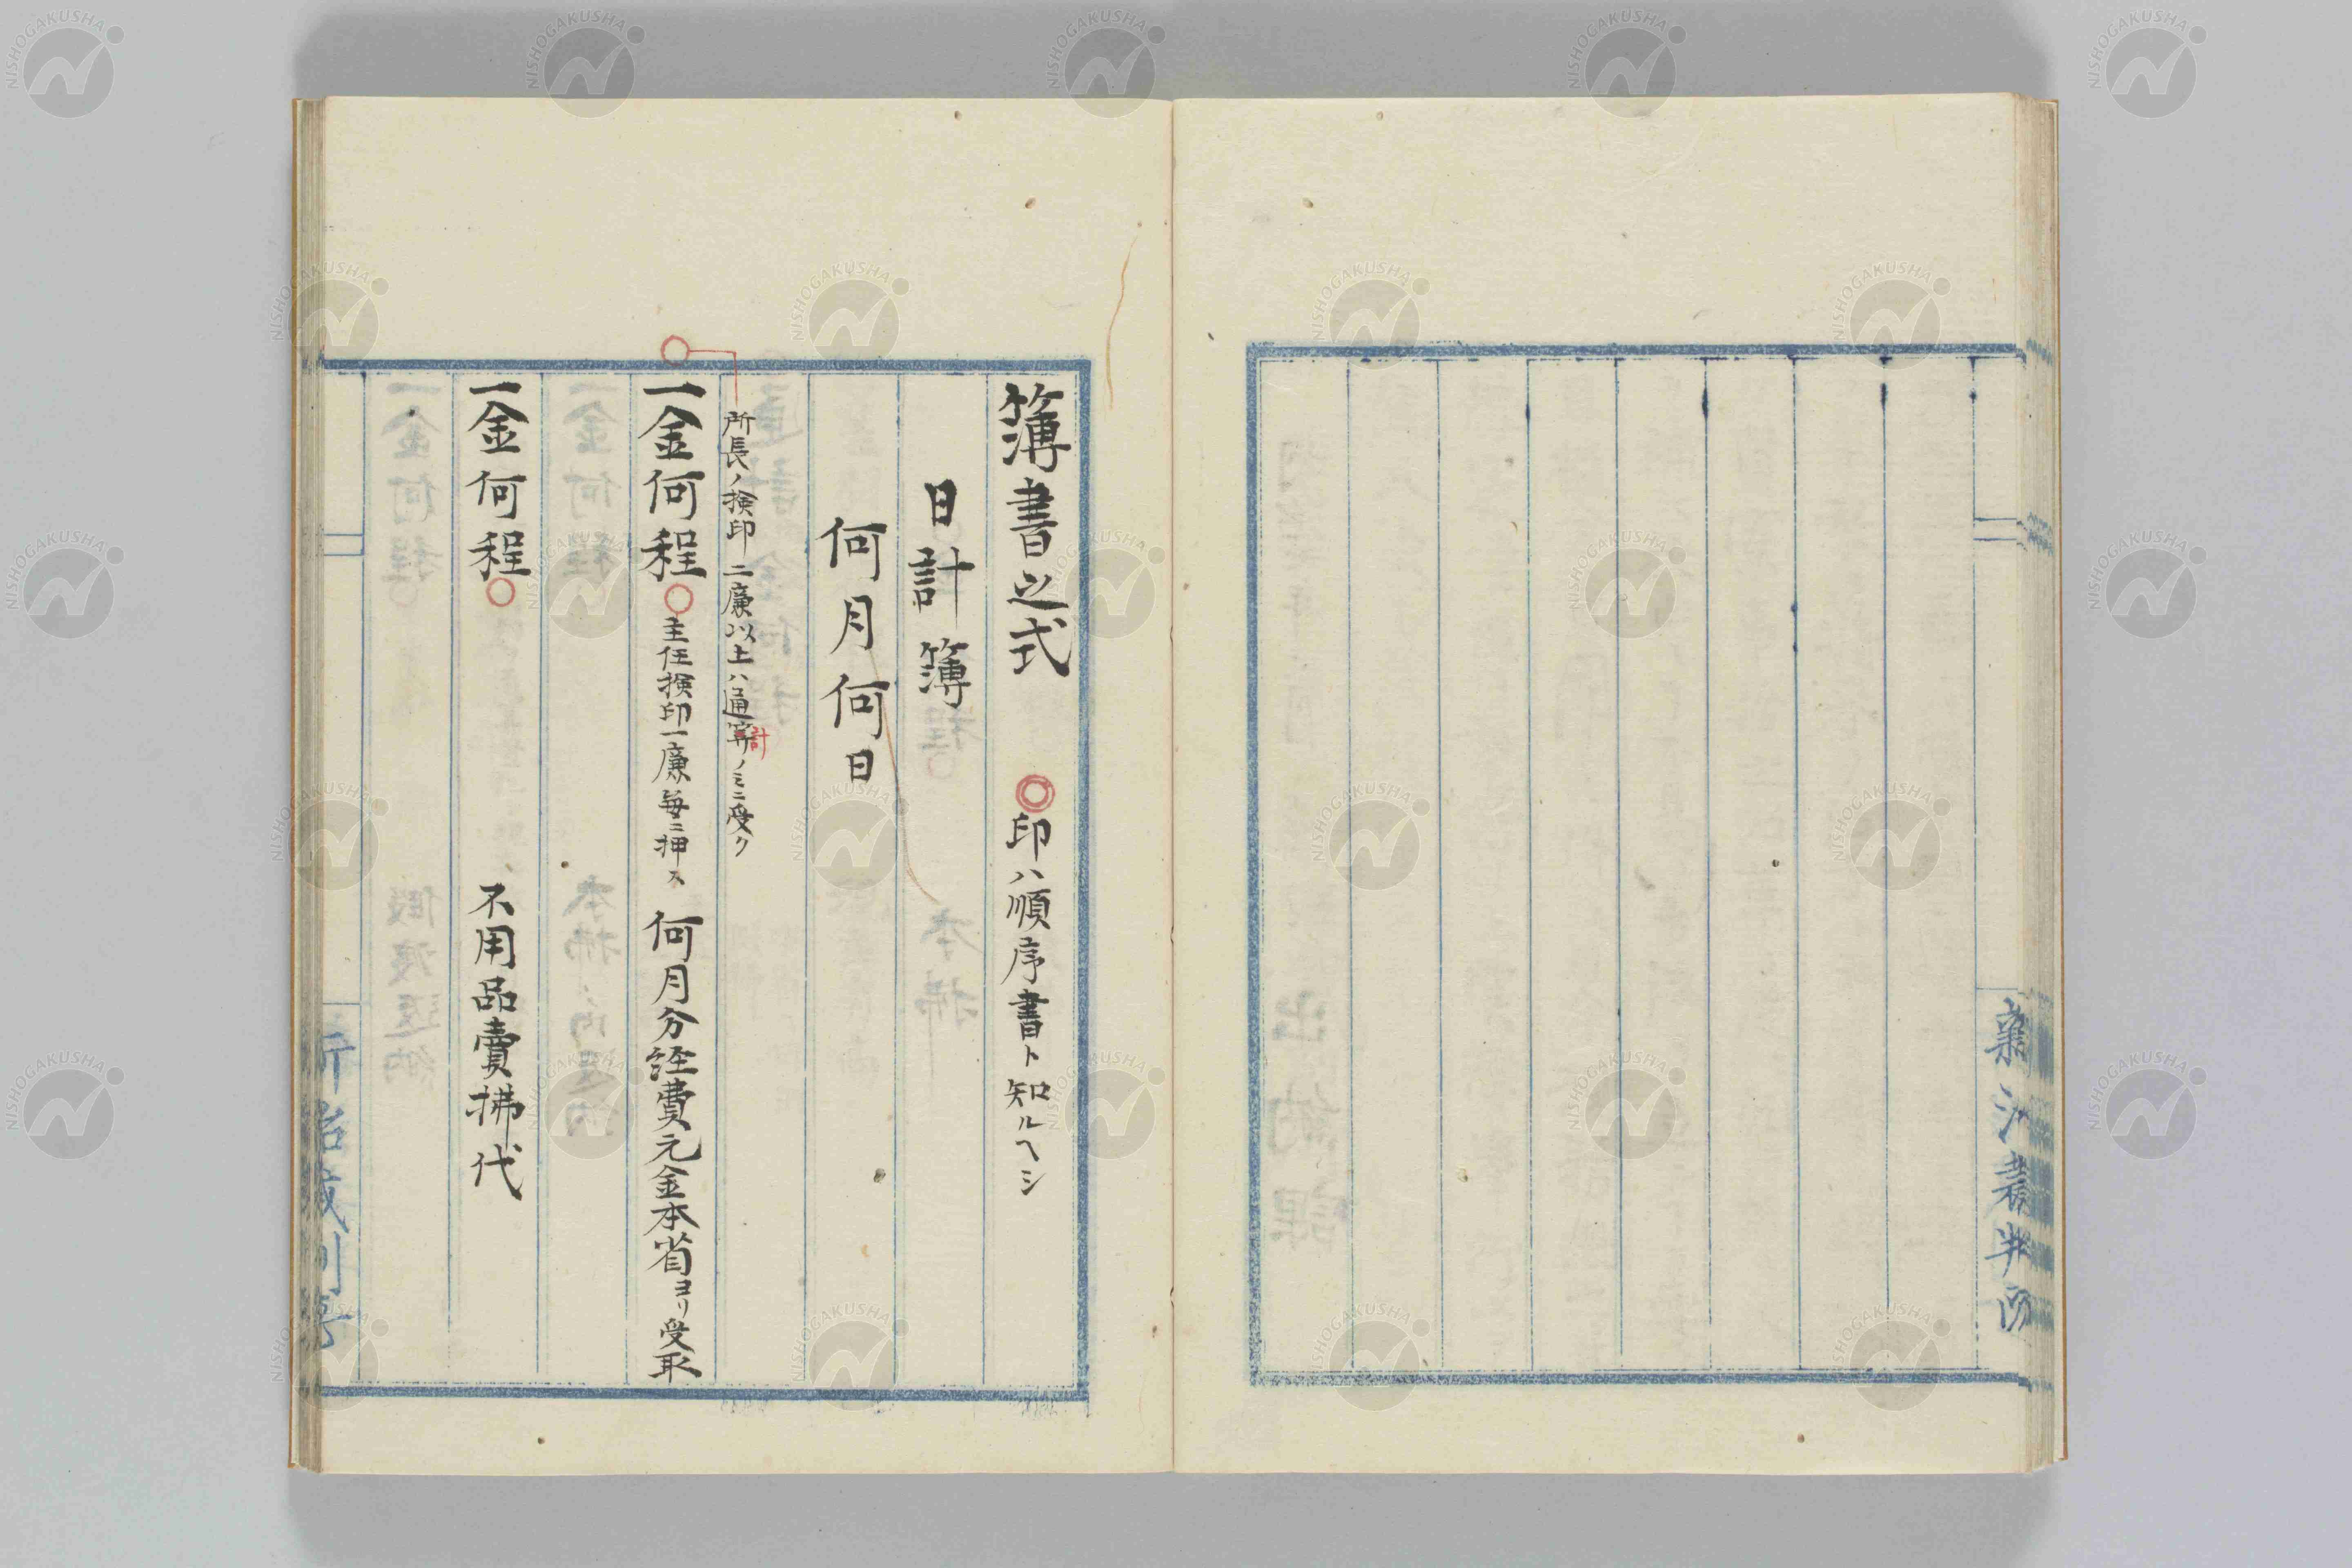 簿書之式　◎印ハ順序書ト知ルヘシ
日計簿
何月何日
所長ノ検印二廉以上ハ通算計ノミニ受ク
一金何程○主任検印一廉毎ニ押ス　何月分経費元金本省ヨリ受取
一金何程○　不用品賣拂代
NISHOGAKUSHA